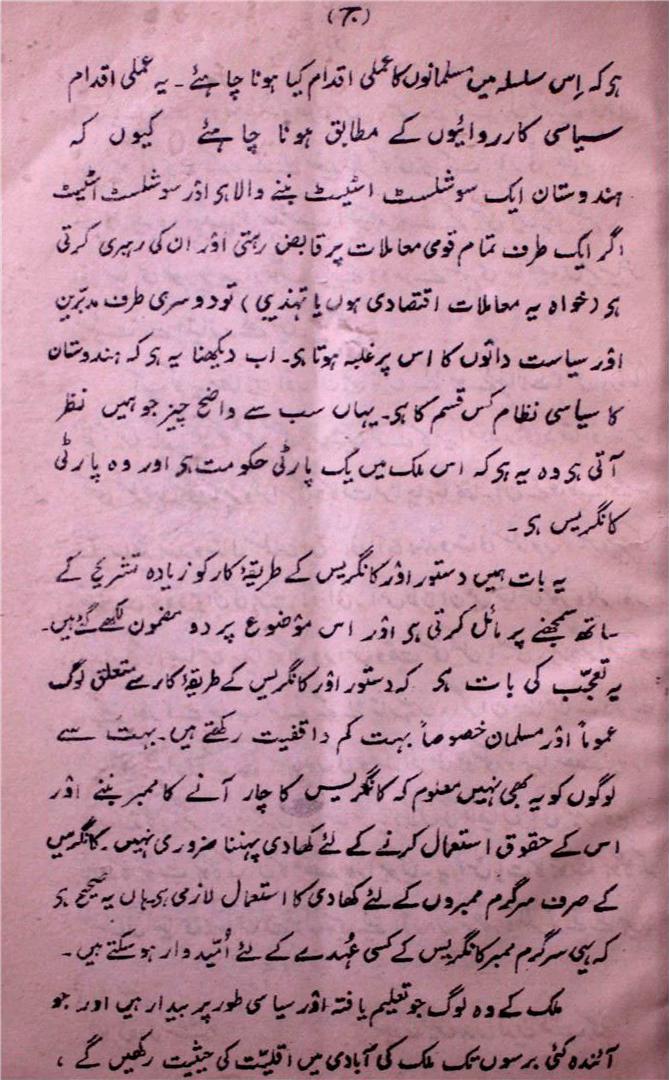 (ج)
ہی کہ اِس سلسلہ میں مسلمانوں کا عملی اقدام کیا ہونا چاہئے۔ یہ عملی اقدام
سیاسی کارروائیوں کے مطابق ہونا چاہئے کیوں کہ
ہندوستان ایک سوشلسٹ اسٹیٹ بننے والا ہی اور سوشلسٹ اسٹیٹ
اگر ایک طرف تمام قومی معاملات پر قابض رہتی اور ان کی رہبری کرتی
ہی (خواہ یہ معاملات اقتصادی ہوں یا تہذیبی) تو دوسری طرف مدبّرین
اور سیاست دانوں کا اس پر غلبہ ہوتا ہی۔ اب دیکھنا یہ ہی کہ ہندوستان
کا سیاسی نظام کس قسم کا ہی۔ یہاں سب سے واضح چیز جو ہمیں نظر
آتی ہی وہ یہ ہی کہ اس ملک میں یک پارٹی حکومت ہی اور وہ پارٹی
کانگریس ہی۔
یہ بات ہمیں دستور اور کانگریس کے طریقۂ کار کو زیادہ تشریح کے
ساتھ سمجھنے پر مائل کرتی ہی اور اس موضوع پر دو مضمون لکھے گئے ہیں۔
یہ تعجّب کی بات ہی کہ دستور اور کانگریس کے طریقۂ کار سے متعلق لوگ
عموماً اور مسلمان خصوصاً بہت کم واقفیت رکھتے ہیں۔ بہت سے
لوگوں کو یہ بھی نہیں معلوم کہ کانگریس کا چار آنے کا ممبر بننے اور
اس کے حقوق استعمال کرنے کے لئے کھادی پہننا ضروری نہیں۔ کانگریس
کے صرف سرگرم ممبروں کے لئے کھادی کا استعمال لازمی ہی۔ ہاں یہ صحیح ہی
کہ یہی سرگرم ممبر کانگریس کے کسی عُہدے کے لئے اُمّیدوار ہو سکتے ہیں۔
ملک کے وہ لوگ جو تعلیم یافتہ اور سیاسی طور پر بیدار ہیں اور جو
آئندہ کئی برسوں تک ملک کی آبادی میں اقلیّت کی حیثیت رکھیں گے ،